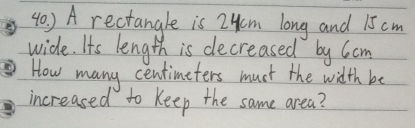 40.) A rectangle is 24cm long and 15 cm
wide. Its length is decreased by 6cm
How many centimeters must the width be
increased to keep the same area?